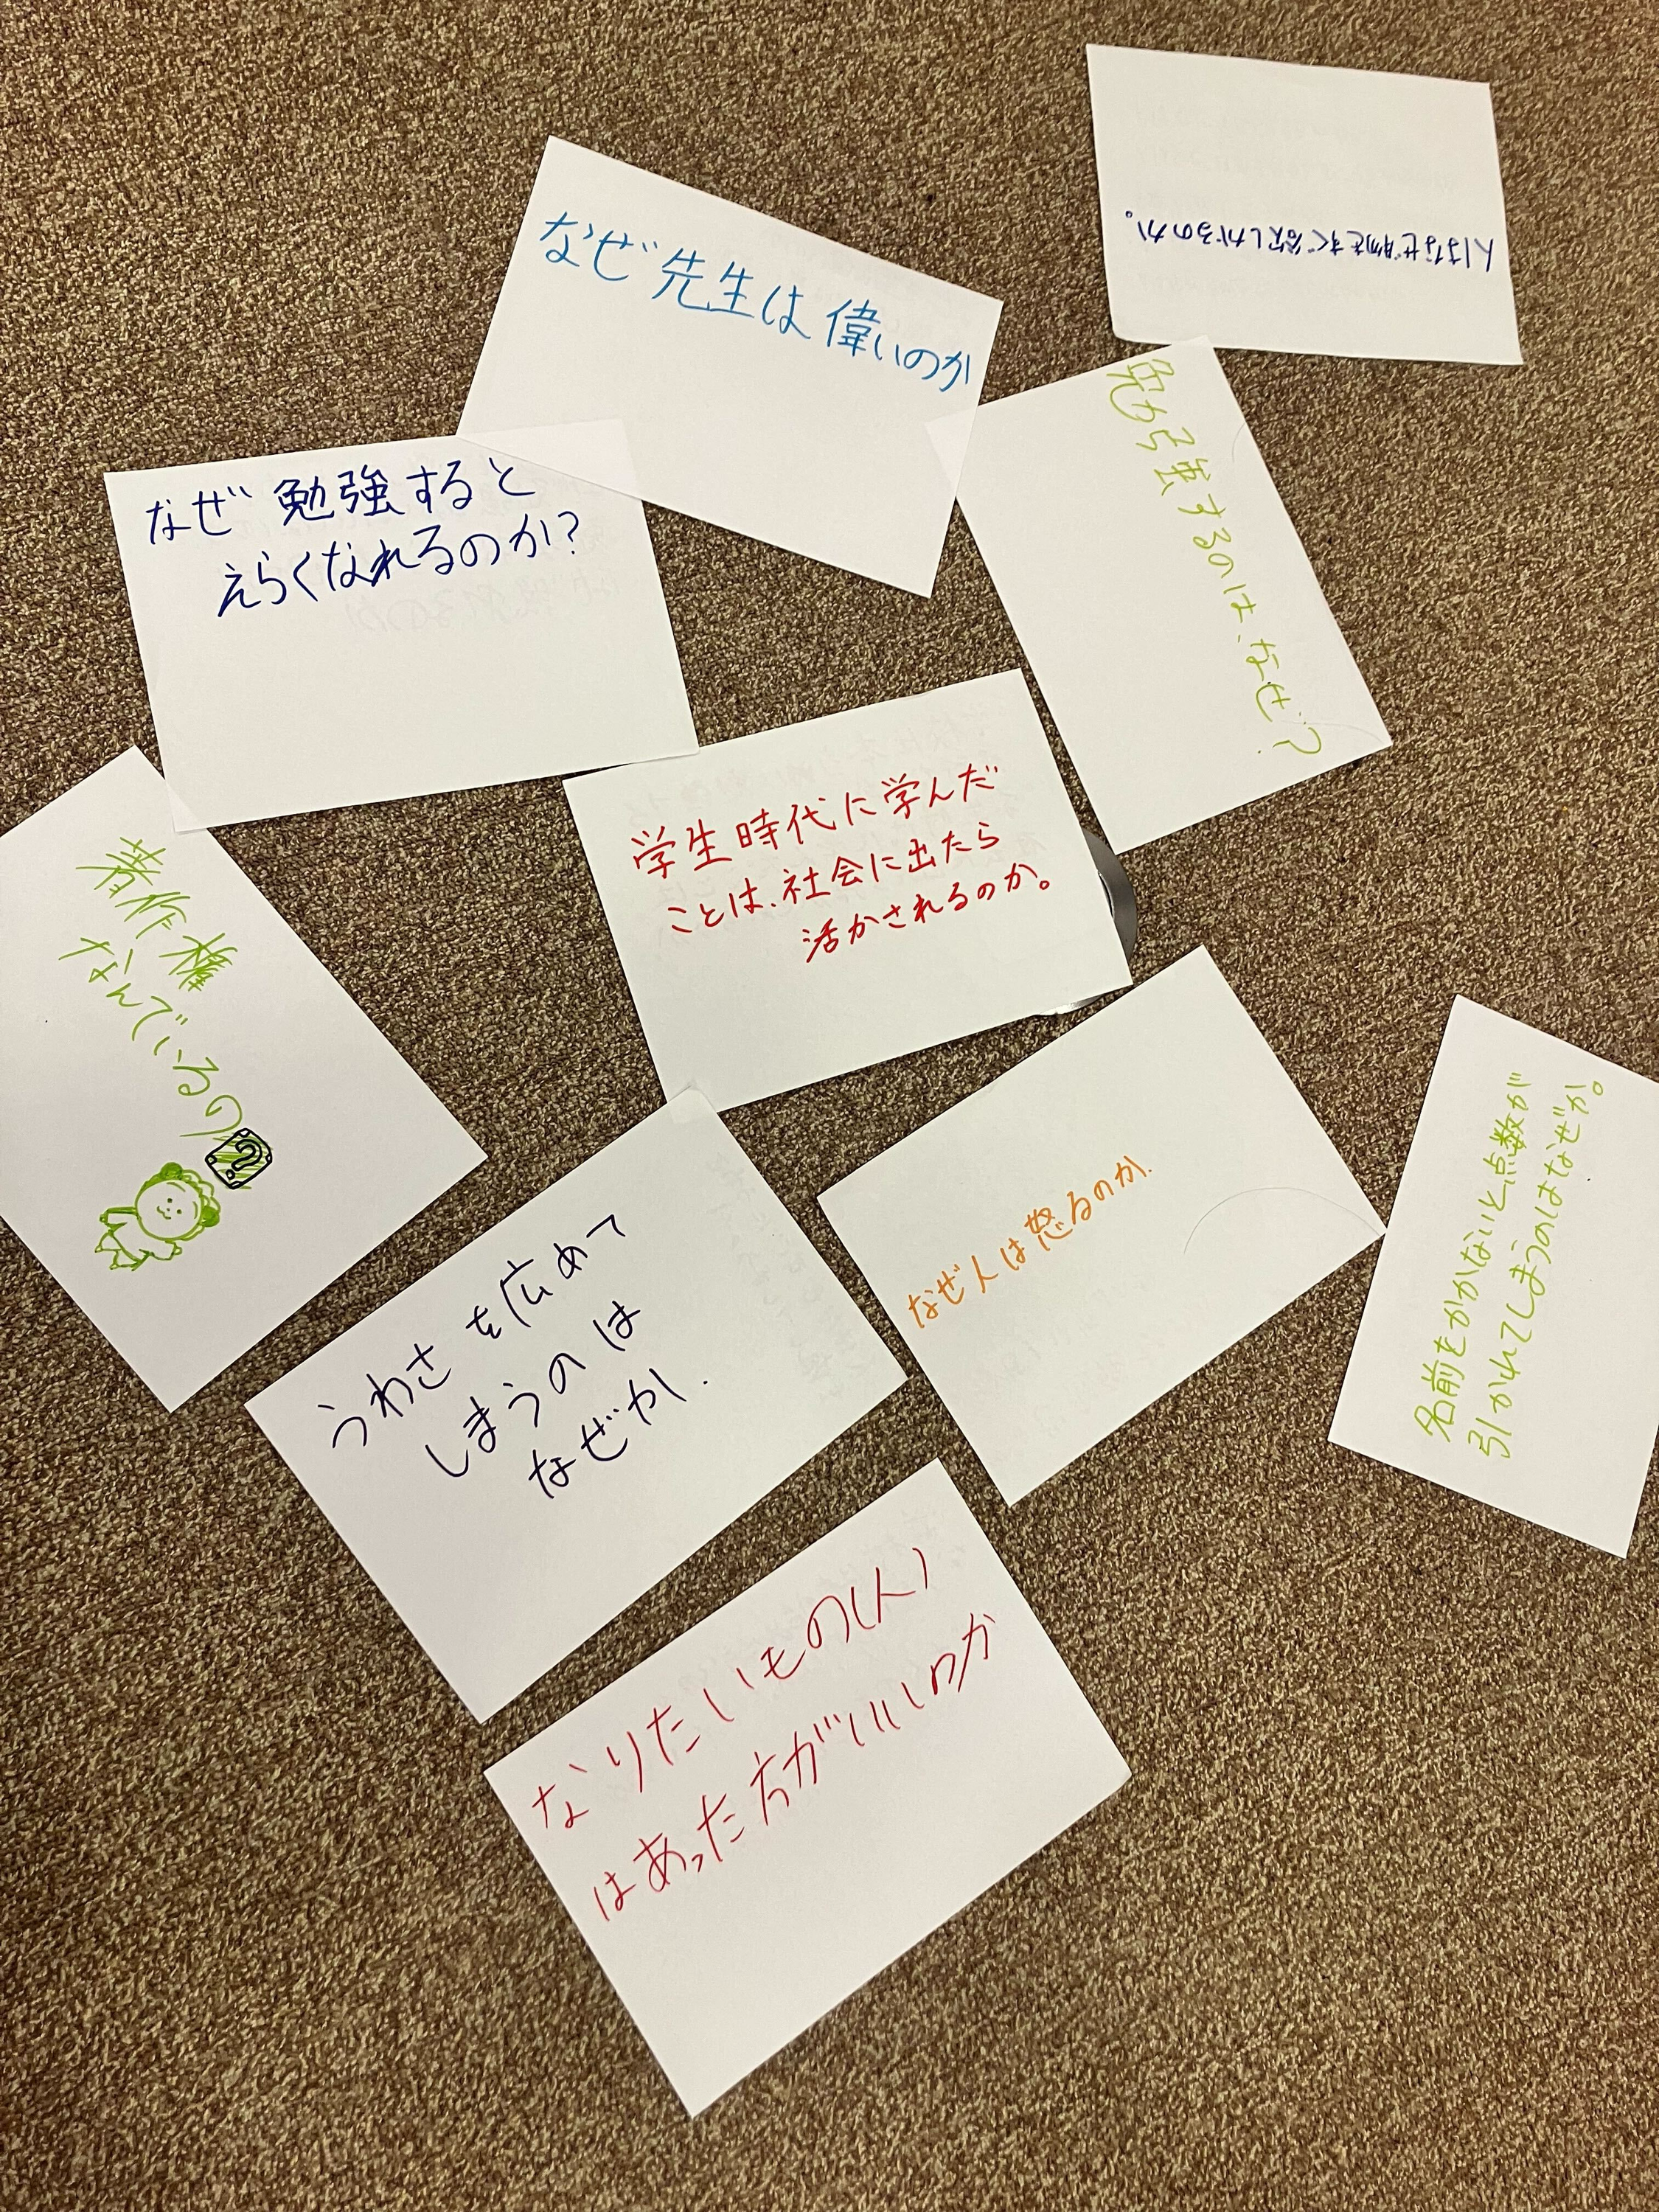 人はなぜ物をすぐ欲しがるのか。
なぜ先生は偉いのか
勉強するのは、なぜ?
なぜ勉強すると
えらくなれるのか?
学生時代に学んだ
ことは、社会に出たら
活かされるのか。
著作権
なんでいるの
?
なぜ人は怒るのか.
名前をかかないと点数が
引かれてしまうのはなぜか。
うわさを広めて
しまうのは
なぜか.
なりたいもの(人)
はあった方がいいのか